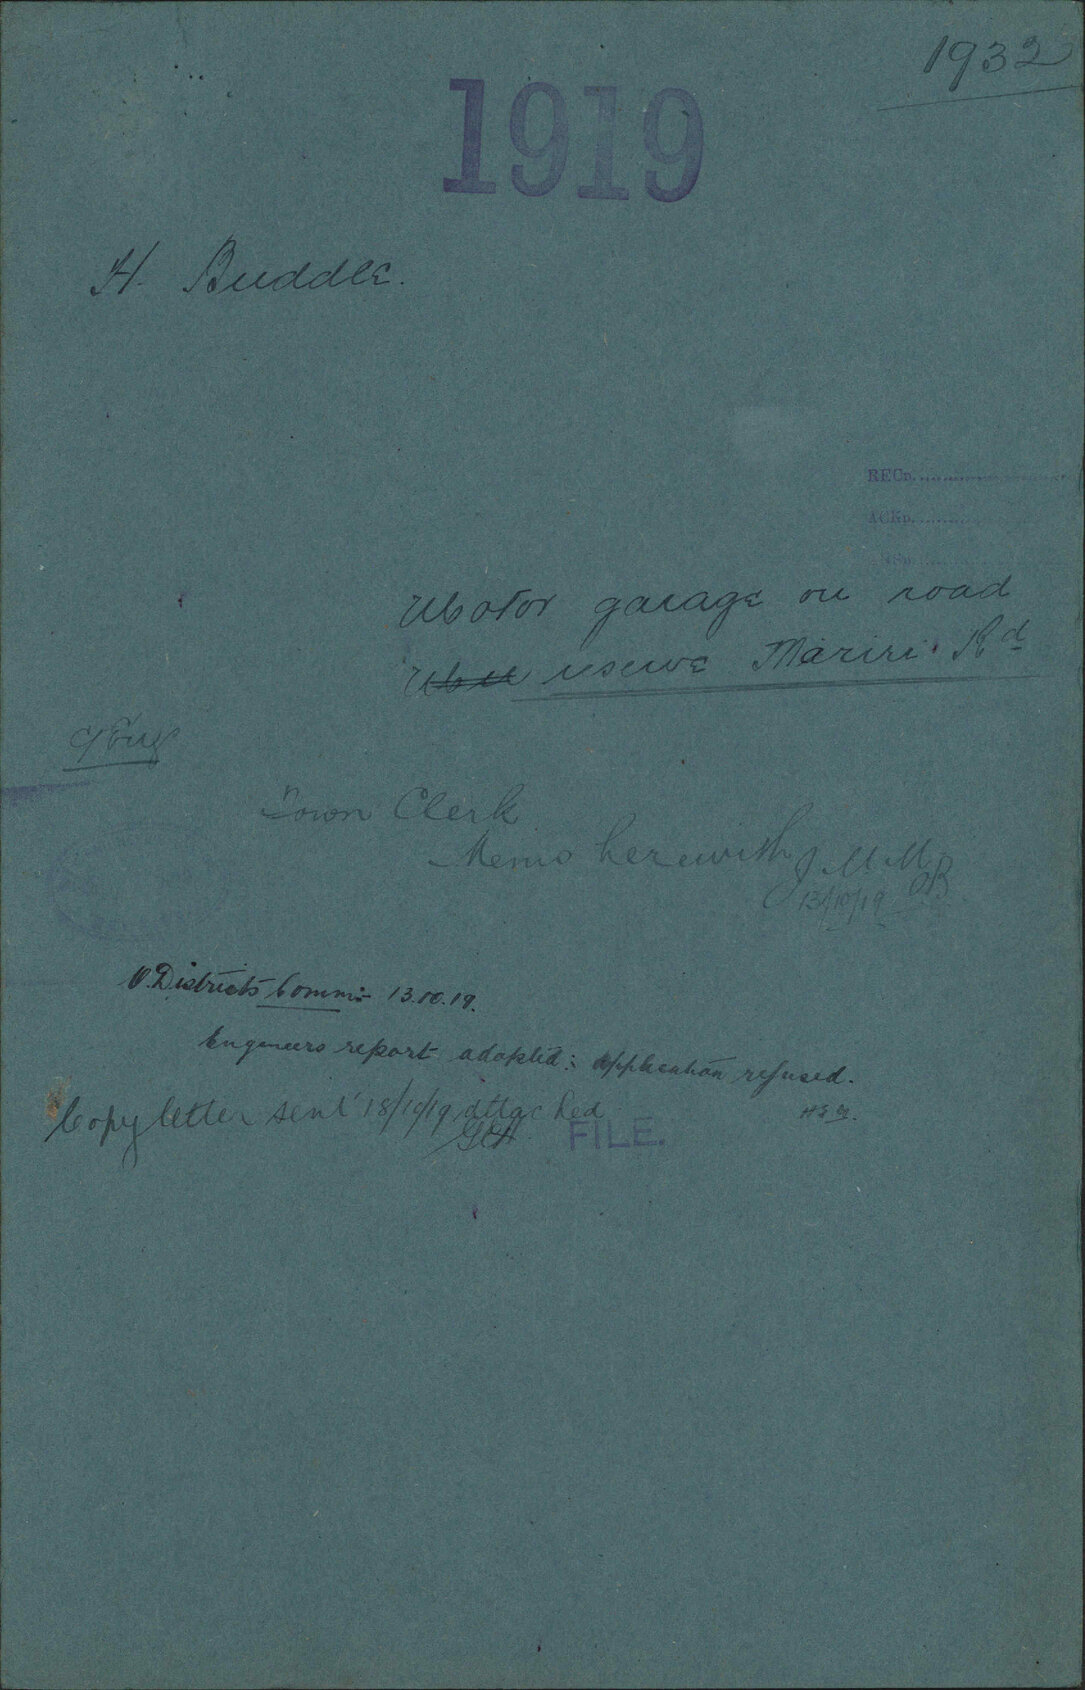 1932
1919
H. Buddle.
RECD.
ACKD.
Motor garage on road
reserve Mariri Rd
C/Eng
Town Clerk
Memo herewith
13/10/19
O. Districts Comm: 13.10.19.
Engineers report adopted: application refused.
Copy letter sent 18/10/19 attached
FILE.